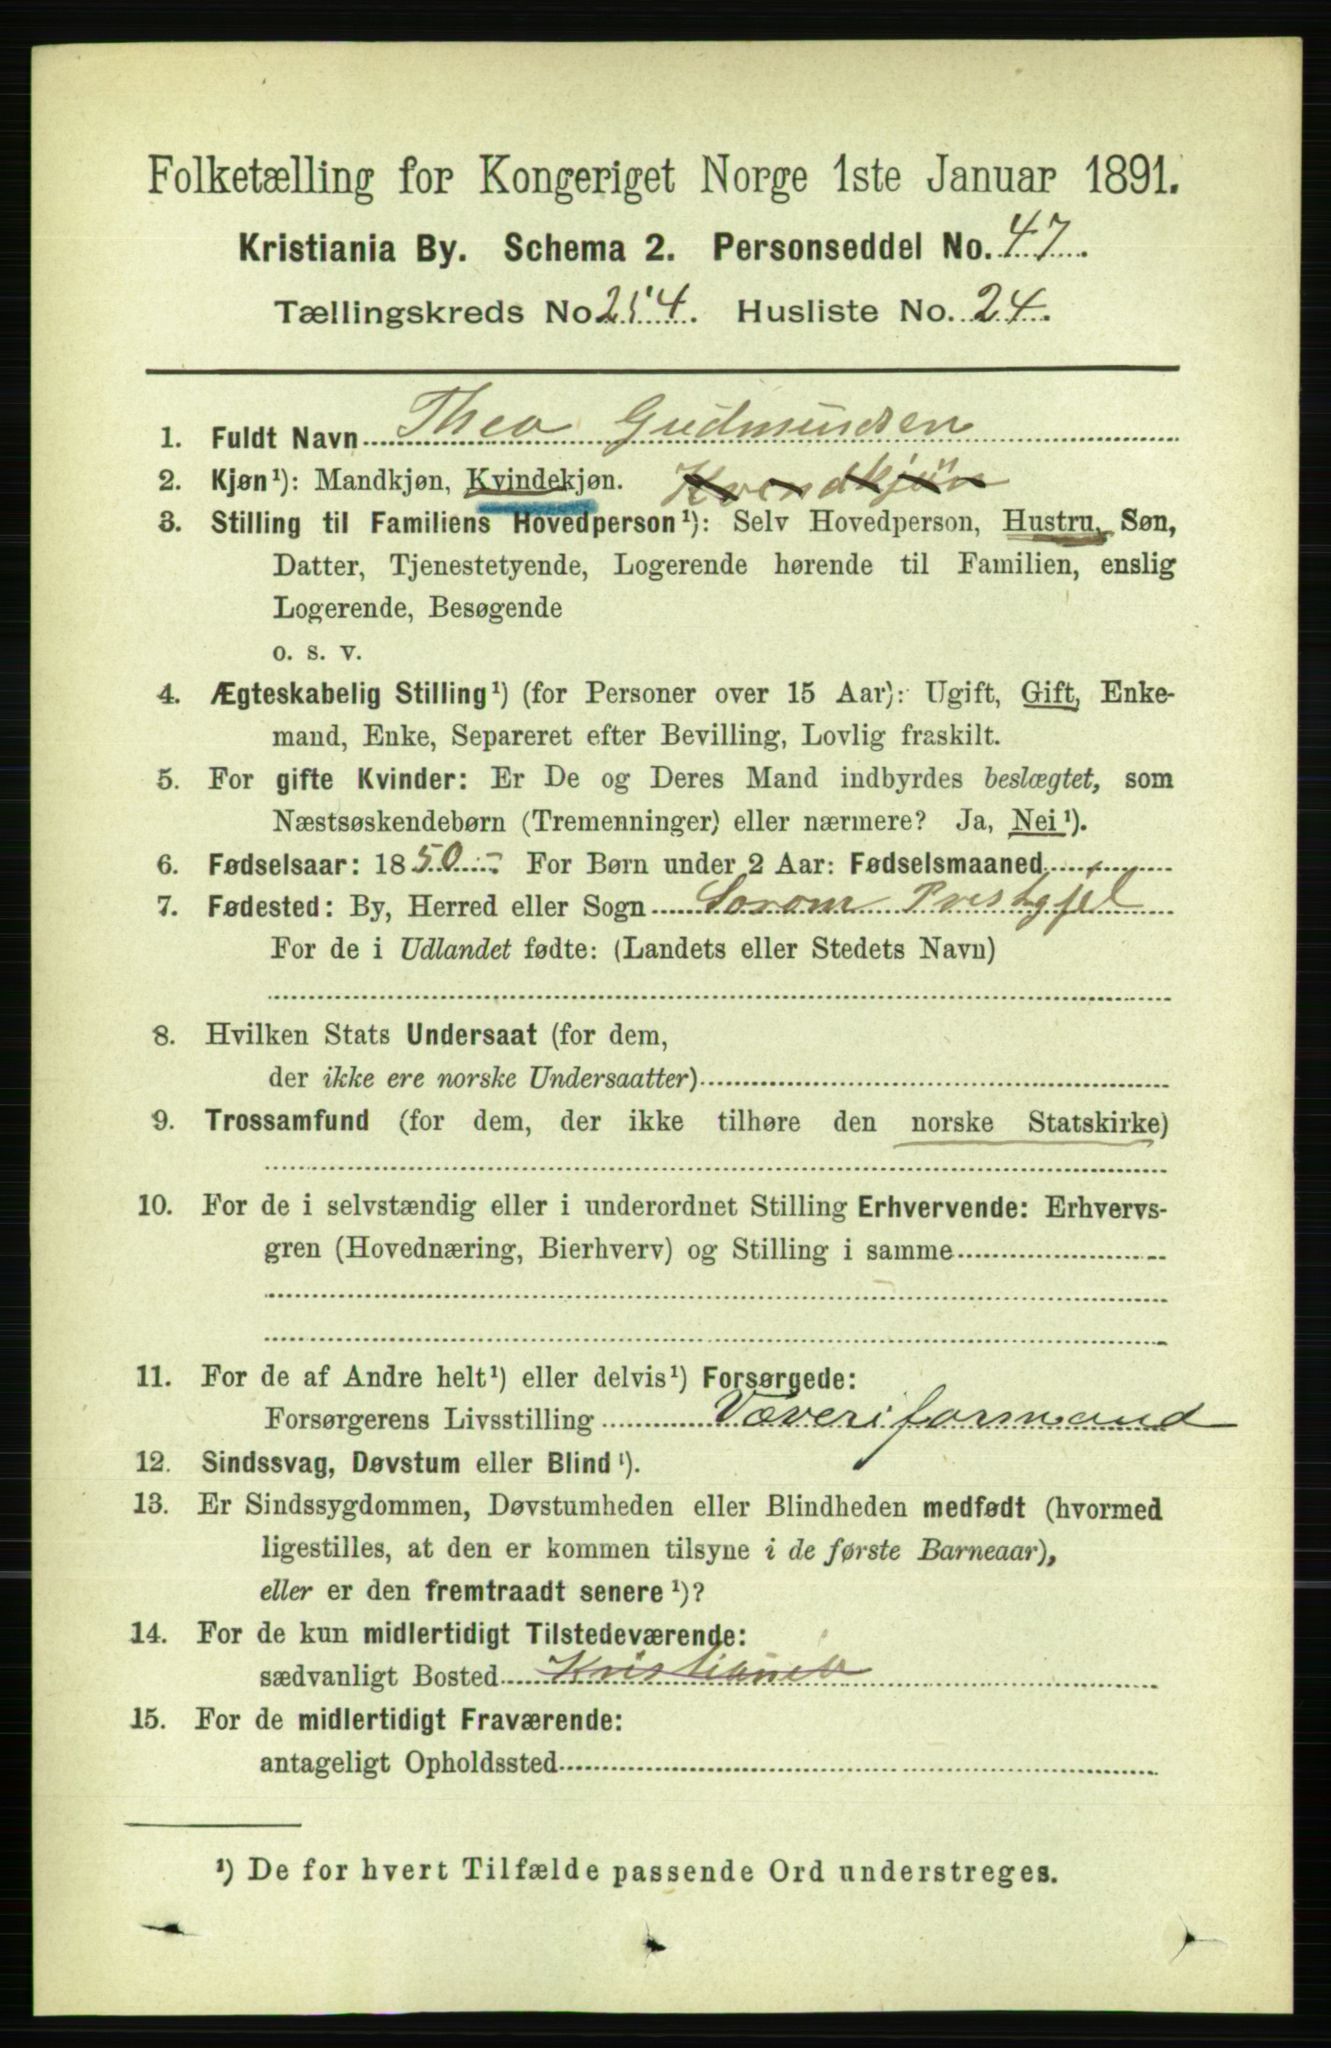 Folketælling for Kongeriget Norge 1ste Januar 1891.
Kristiania By. Schema 2. Personseddel No. 47.
Tællingskreds No 254. Husliste No. 24.
1. Fuldt Navn Thea Gudmundsen
2. Kjøn¹): Mandkjøn, Kvindekjøn. Kvendkjøn
3. Stilling til Familiens Hovedperson¹): Selv Hovedperson, Hustru, Søn,
Datter, Tjenestetyende, Logerende hørende til Familien, enslig
Logerende, Besøgende
o. s. v.
4. Ægteskabelig Stilling¹) (for Personer over 15 Aar): Ugift, Gift, Enke-
mand, Enke, Separeret efter Bevilling, Lovlig fraskilt.
5. For gifte Kvinder: Er De og Deres Mand indbyrdes beslægtet, som
Næstsøskendebørn (Tremenninger) eller nærmere? Ja, Nei¹).
6. Fødselsaar: 1850 For Børn under 2 Aar: Fødselsmaaned
7. Fødested: By, Herred eller Sogn Sorom Prestgjel
For de i Udlandet fødte: (Landets eller Stedets Navn)
8. Hvilken Stats Undersaat (for dem,
der ikke ere norske Undersaatter)
9. Trossamfund (for dem, der ikke tilhøre den norske Statskirke)
10. For de i selvstændig eller i underordnet Stilling Erhvervende: Erhvervs-
gren (Hovednæring, Bierhverv) og Stilling i samme
11. For de af Andre helt¹) eller delvis¹) Forsørgede:
Forsørgerens Livsstilling Væveriformand
12. Sindssvag, Døvstum eller Blind¹).
13. Er Sindssygdommen, Døvstumheden eller Blindheden medfødt (hvormed
ligestilles, at den er kommen tilsyne i de første Barneaar),
eller er den fremtraadt senere¹)?
14. For de kun midlertidigt Tilstedeværende:
sædvanligt Bosted Kristiania
15. For de midlertidigt Fraværende:
antageligt Opholdssted
¹) De for hvert Tilfælde passende Ord understreges.